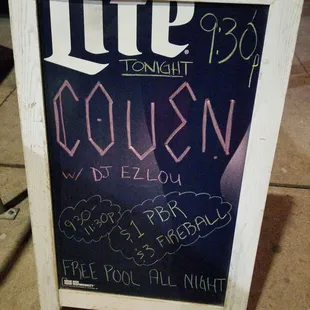 Lite
9:30p
TONIGHT
COVEN
W/ DJ EZLOU
9:30-11:30P
$1 PBR
$3 FIREBALL
FREE POOL ALL NIGHT